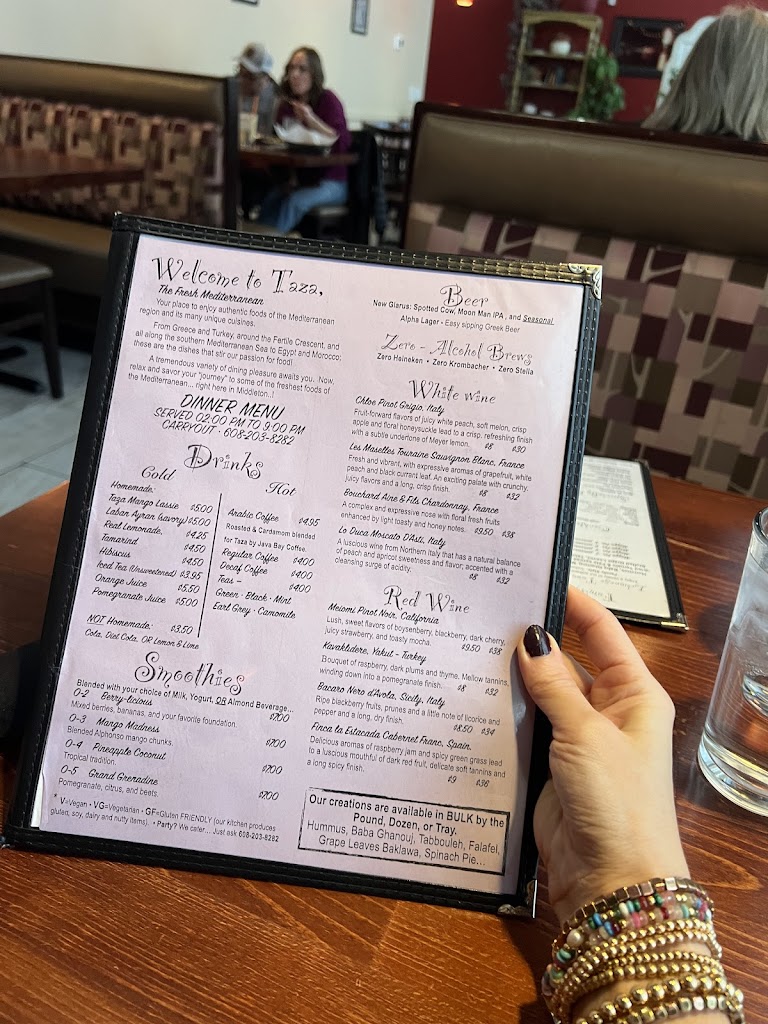 Welcome to Taza,
The Fresh Mediterranean
Your place to enjoy authentic foods of the Mediterranean
region and its many unique cuisines.
From Greece and Turkey, around the Fertile Crescent, and
all along the southern Mediterranean Sea to Egypt and Morocco;
these are the dishes that stir our passion for food!
A tremendous variety of dining pleasure awaits you. Now,
relax and savor your "journey" to some of the freshest foods of
the Mediterranean... right here in Middleton..!
DINNER MENU
SERVED 02:00 PM TO 9:00 PM
CARRYOUT · 608-203-8282
Drinks
Cold
Homemade:
Taza Mango Lassie $5.00
Laban Ayran (savory) $5.00
Real Lemonade, $4.25
Tamarind $4.50
Hibiscus $4.50
Iced Tea (Unsweetened) $3.95
Orange Juice $5.50
Pomegranate Juice $5.00
NOT Homemade: $3.50
Cola, Diet Cola, OR Lemon & Lime
Hot
Arabic Coffee $4.95
Roasted & Cardamom blended
for Taza by Java Bay Coffee.
Regular Coffee $4.00
Decaf Coffee $4.00
Teas – $4.00
Green · Black · Mint
Earl Grey · Camomile
Smoothies
Blended with your choice of Milk, Yogurt, OR Almond Beverage...
O-2 Berry-licious $7.00
Mixed berries, bananas, and your favorite foundation.
O-3 Mango Madness $7.00
Blended Alphonso mango chunks.
O-4 Pineapple Coconut $7.00
Tropical tradition.
O-5 Grand Grenadine $7.00
Pomegranate, citrus, and beets.
* V=Vegan • VG=Vegetarian • GF=Gluten FRIENDLY (our kitchen produces
gluten, soy, dairy and nutty items). • Party? We cater... Just ask 608-203-8282
Beer
New Glarus: Spotted Cow, Moon Man IPA, and Seasonal
Alpha Lager - Easy sipping Greek Beer
Zero - Alcohol Brews
Zero Heineken • Zero Krombacher • Zero Stella
White wine
Chloe Pinot Grigio, Italy
Fruit-forward flavors of juicy white peach, soft melon, crisp
apple and floral honeysuckle lead to a crisp, refreshing finish
with a subtle undertone of Meyer lemon.. $8 $30
Les Maselles Touraine Sauvignon Blanc, France
Fresh and vibrant, with expressive aromas of grapefruit, white
peach and black currant leaf. An exciting palate with crunchy,
juicy flavors and a long, crisp finish. $8 $32
Bouchard Aine & Fils Chardonnay, France
A complex and expressive nose with floral fresh fruits
enhanced by light toasty and honey notes.. $9.50 $38
Lo Duca Moscato D'Asti, Italy
A luscious wine from Northern Italy that has a natural balance
of peach and apricot sweetness and flavor; accented with a
cleansing surge of acidity. $8 $32
Red Wine
Meiomi Pinot Noir, California
Lush, sweet flavors of boysenberry, blackberry, dark cherry,
juicy strawberry, and toasty mocha. $9.50 $38
Kavaklidere, Yakut - Turkey
Bouquet of raspberry, dark plums and thyme. Mellow tannins,
winding down into a pomegranate finish.. $8 $32
Bacaro Nero d'Avola, Sicily, Italy
Ripe blackberry fruits, prunes and a little note of licorice and
pepper and a long, dry finish. $8.50 $34
Finca la Estacada Cabernet Franc, Spain.
Delicious aromas of raspberry jam and spicy green grass lead
to a luscious mouthful of dark red fruit, delicate soft tannins and
a long spicy finish. $9 $36
Our creations are available in BULK by the
Pound, Dozen, or Tray.
Hummus, Baba Ghanouj, Tabbouleh, Falafel,
Grape Leaves Baklawa, Spinach Pie...